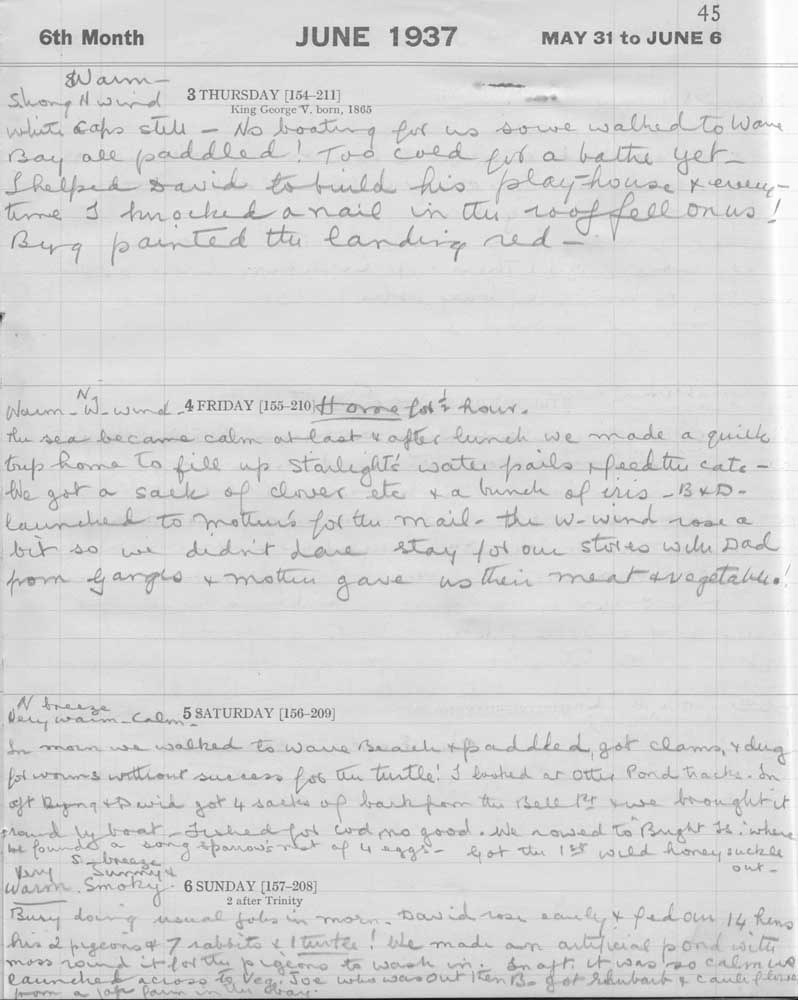 45
6th Month JUNE 1937 MAY 31 to JUNE 6
Warm -
Strong N wind 3 THURSDAY [154–211]
King George V. born, 1865
White caps still - No boating for us so we walked to Wave
Bay all paddled! Too cold for a bathe yet -
I helped David to build his play-house & every-
time I knocked a nail in the roof fell on us!
Byng painted the landing red -
Warm - N.W. wind - 4 FRIDAY [155–210] Home for ½ hour.
The sea became calm at last & after lunch we made a quick
trip home to fill up Starlight's water pails & feed the cats -
We got a sack of clover etc & a bunch of iris - B & D -
launched to Mother's for the mail - the W-wind rose a
bit so we didn't dare stay for our stores with Dad
from Ganges & Mother gave us their meat & vegetables!
N breeze
Very warm - Calm - 5 SATURDAY [156–209]
In morn we walked to Wave Beach & paddled, got clams, & dug
for worms without success for the turtle! I looked at Otter Pond tracks. In
aft Byng & David got 4 sacks of bark from the Bell Pt & we brought it
round by boat - Fished for cod, no good. We rowed to "Bright Is." where
we found a song sparrow's nest of 4 eggs - Got the 1st wild honeysuckle
out -
S - breeze
Very Sunny &
Warm. Smoky. 6 SUNDAY [157–208]
2 after Trinity
Busy doing usual jobs in morn. David rose early & fed our 14 hens
his 2 pigeons & 7 rabbits & 1 turtle! We made an artificial pond with
moss round it for the pigeons to wash in. In aft. it was so calm we
launched across to Veg. Joe who was out then B. got rhubarb & cauliflower
from a Jap farm in the bay.